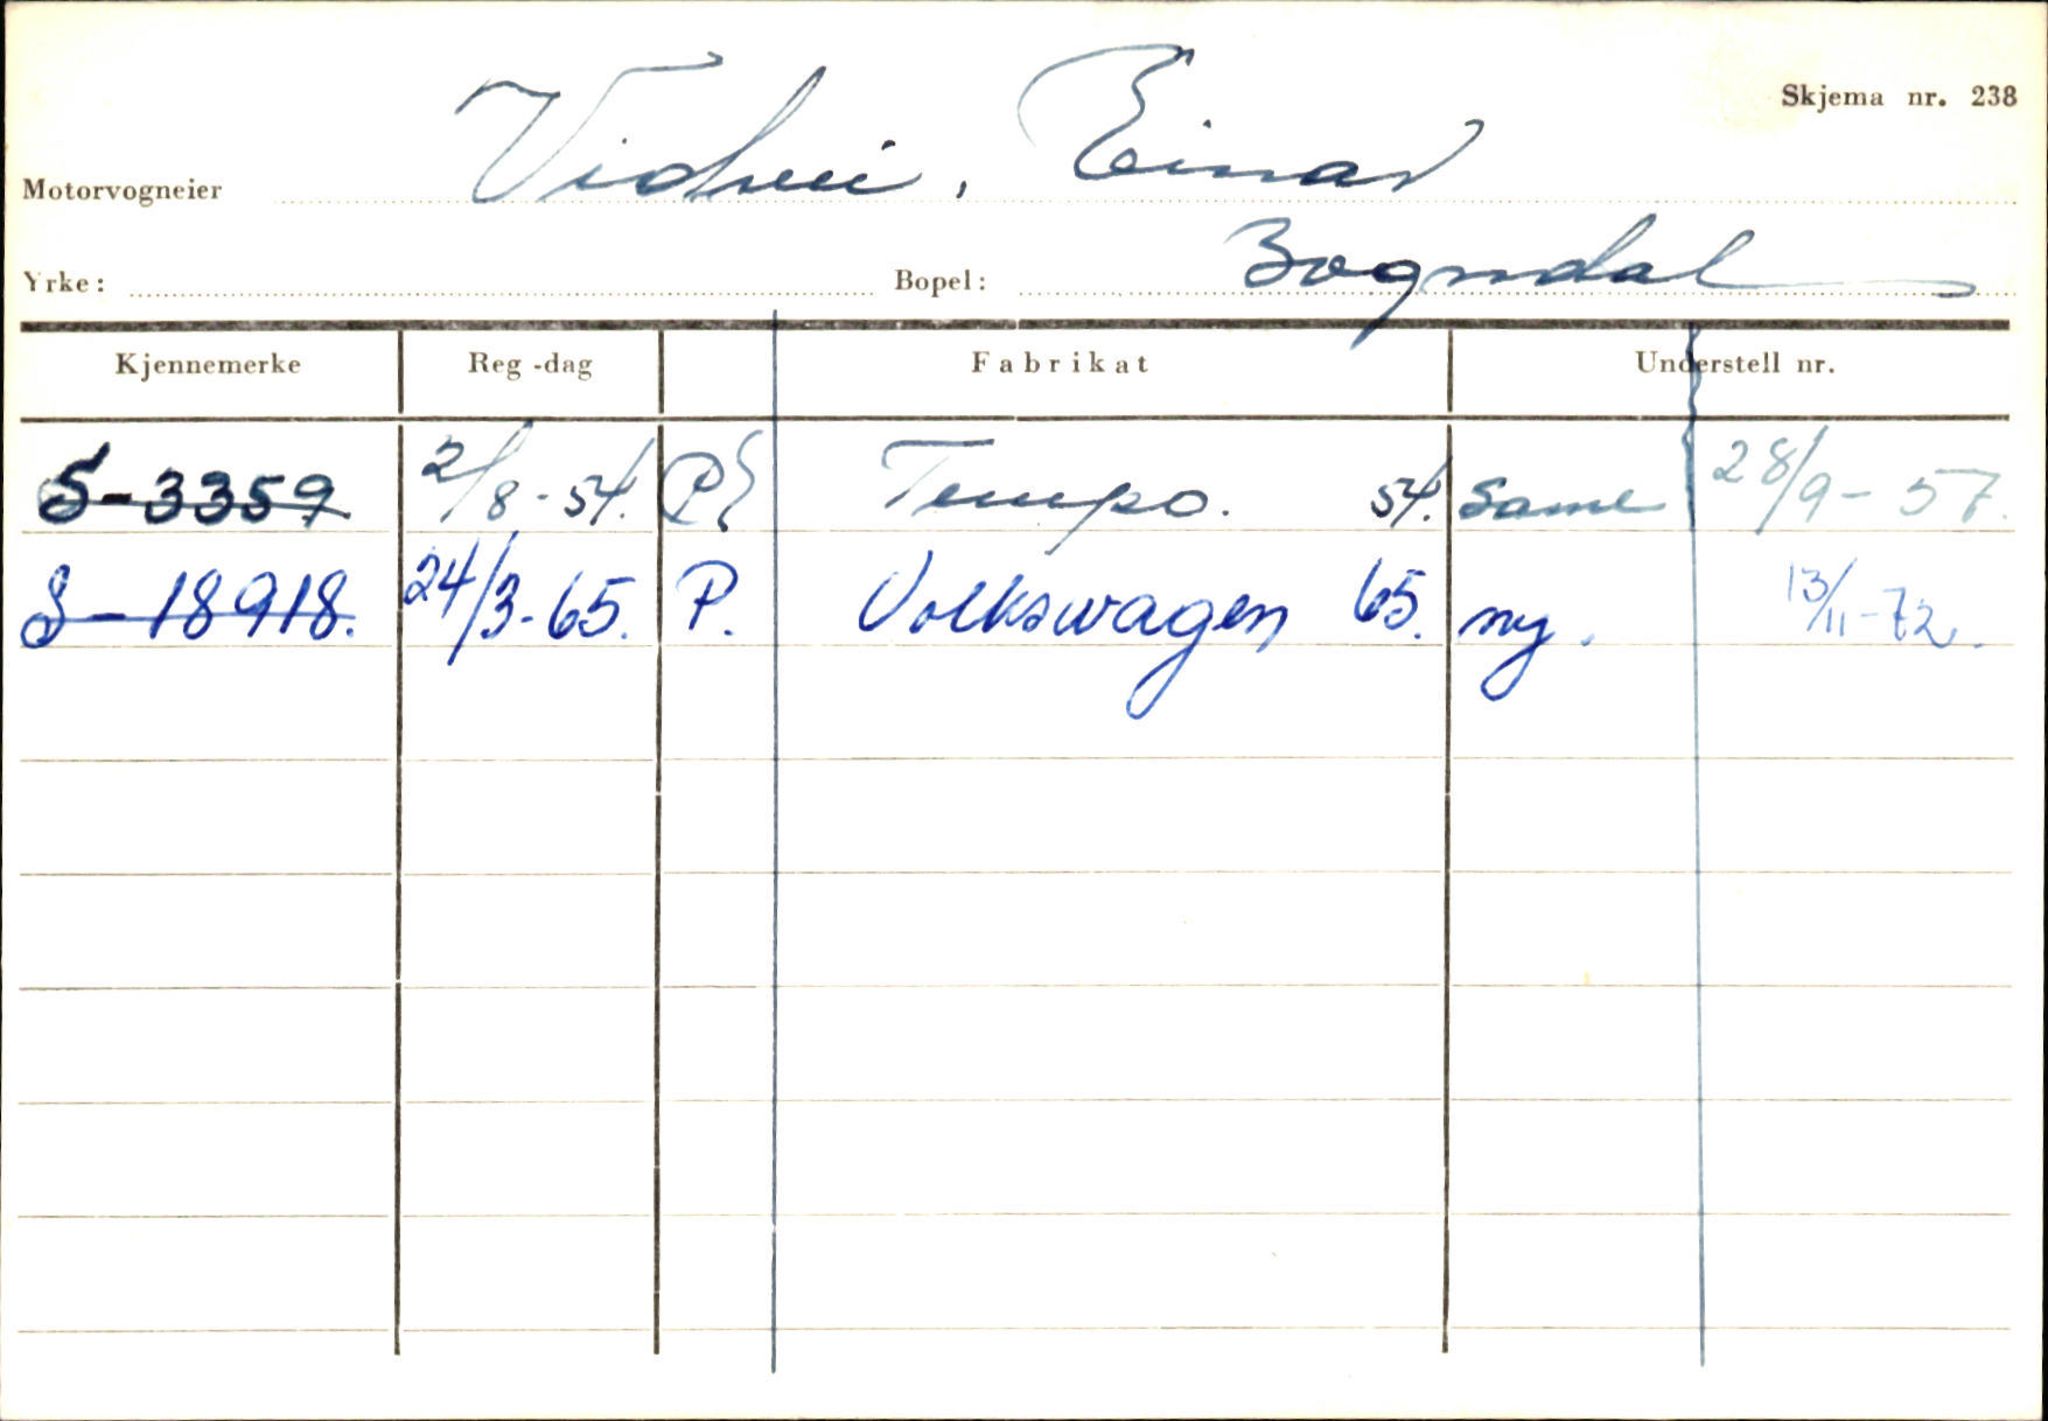 Skjema nr. 238
Motorvogneier Vidvei, Einar
Yrke: Bopel: Sogndal
Kjennemerke Reg -dag Fabrikat Understell nr.
S-3359 2/8-54. P Tempo. 54. Same 28/9-57.
S-18918. 24/3-65. P. Volkswagen 65. ny. 13/11-72.